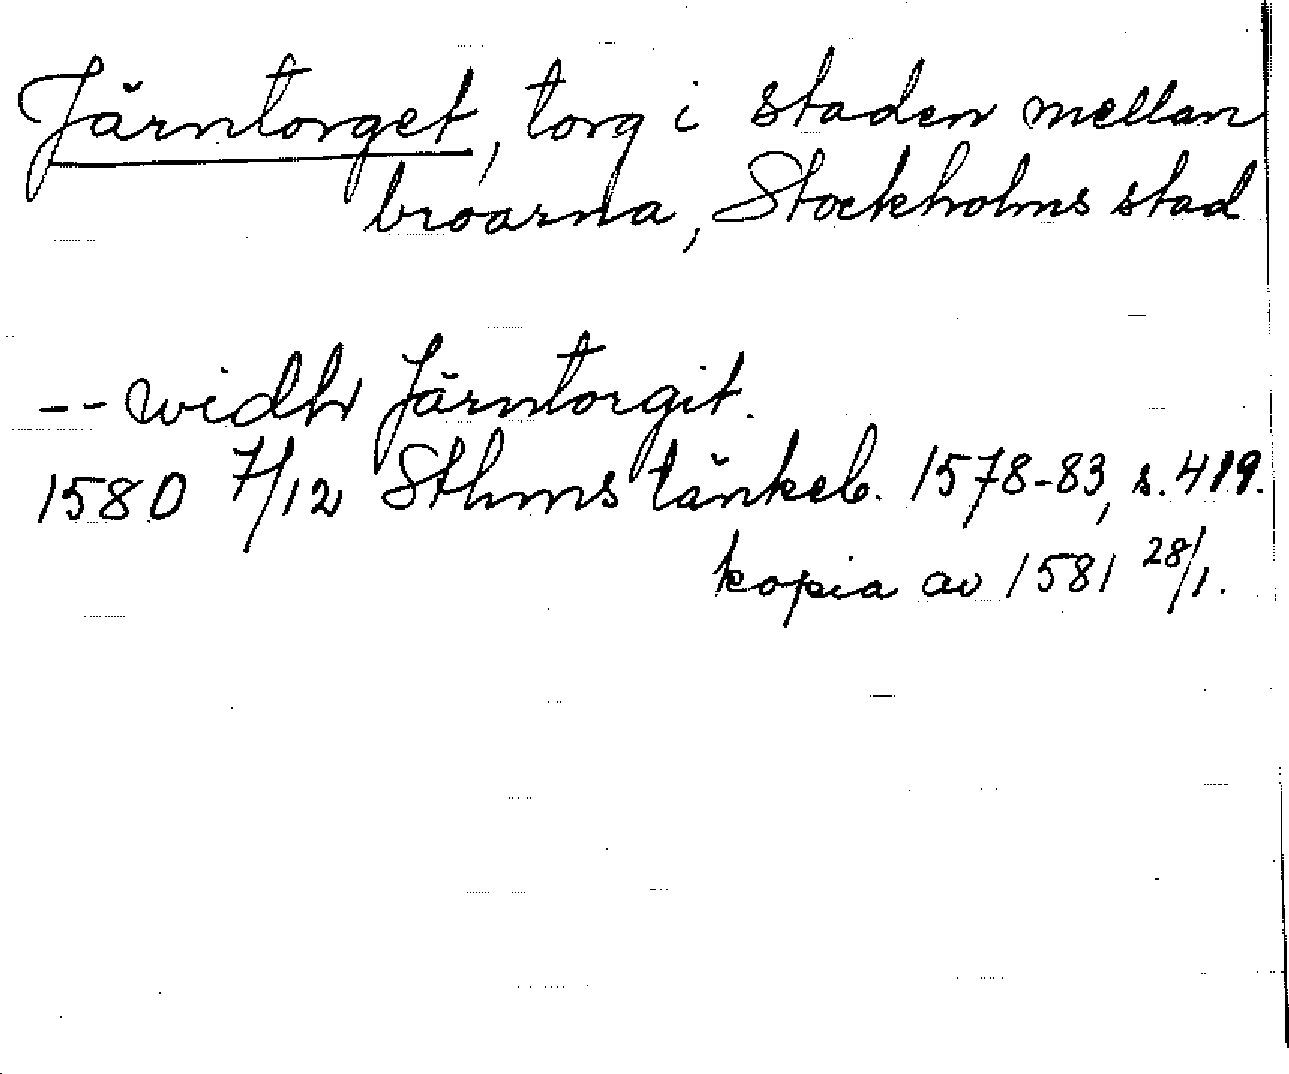 Järntorget, torg i staden mellan
broarna, Stockholms stad
-- widh Järntorgit.
1580 7/12 Sthms tänkeb. 1578-83, s. 419.
kopia av 1581 28/1.